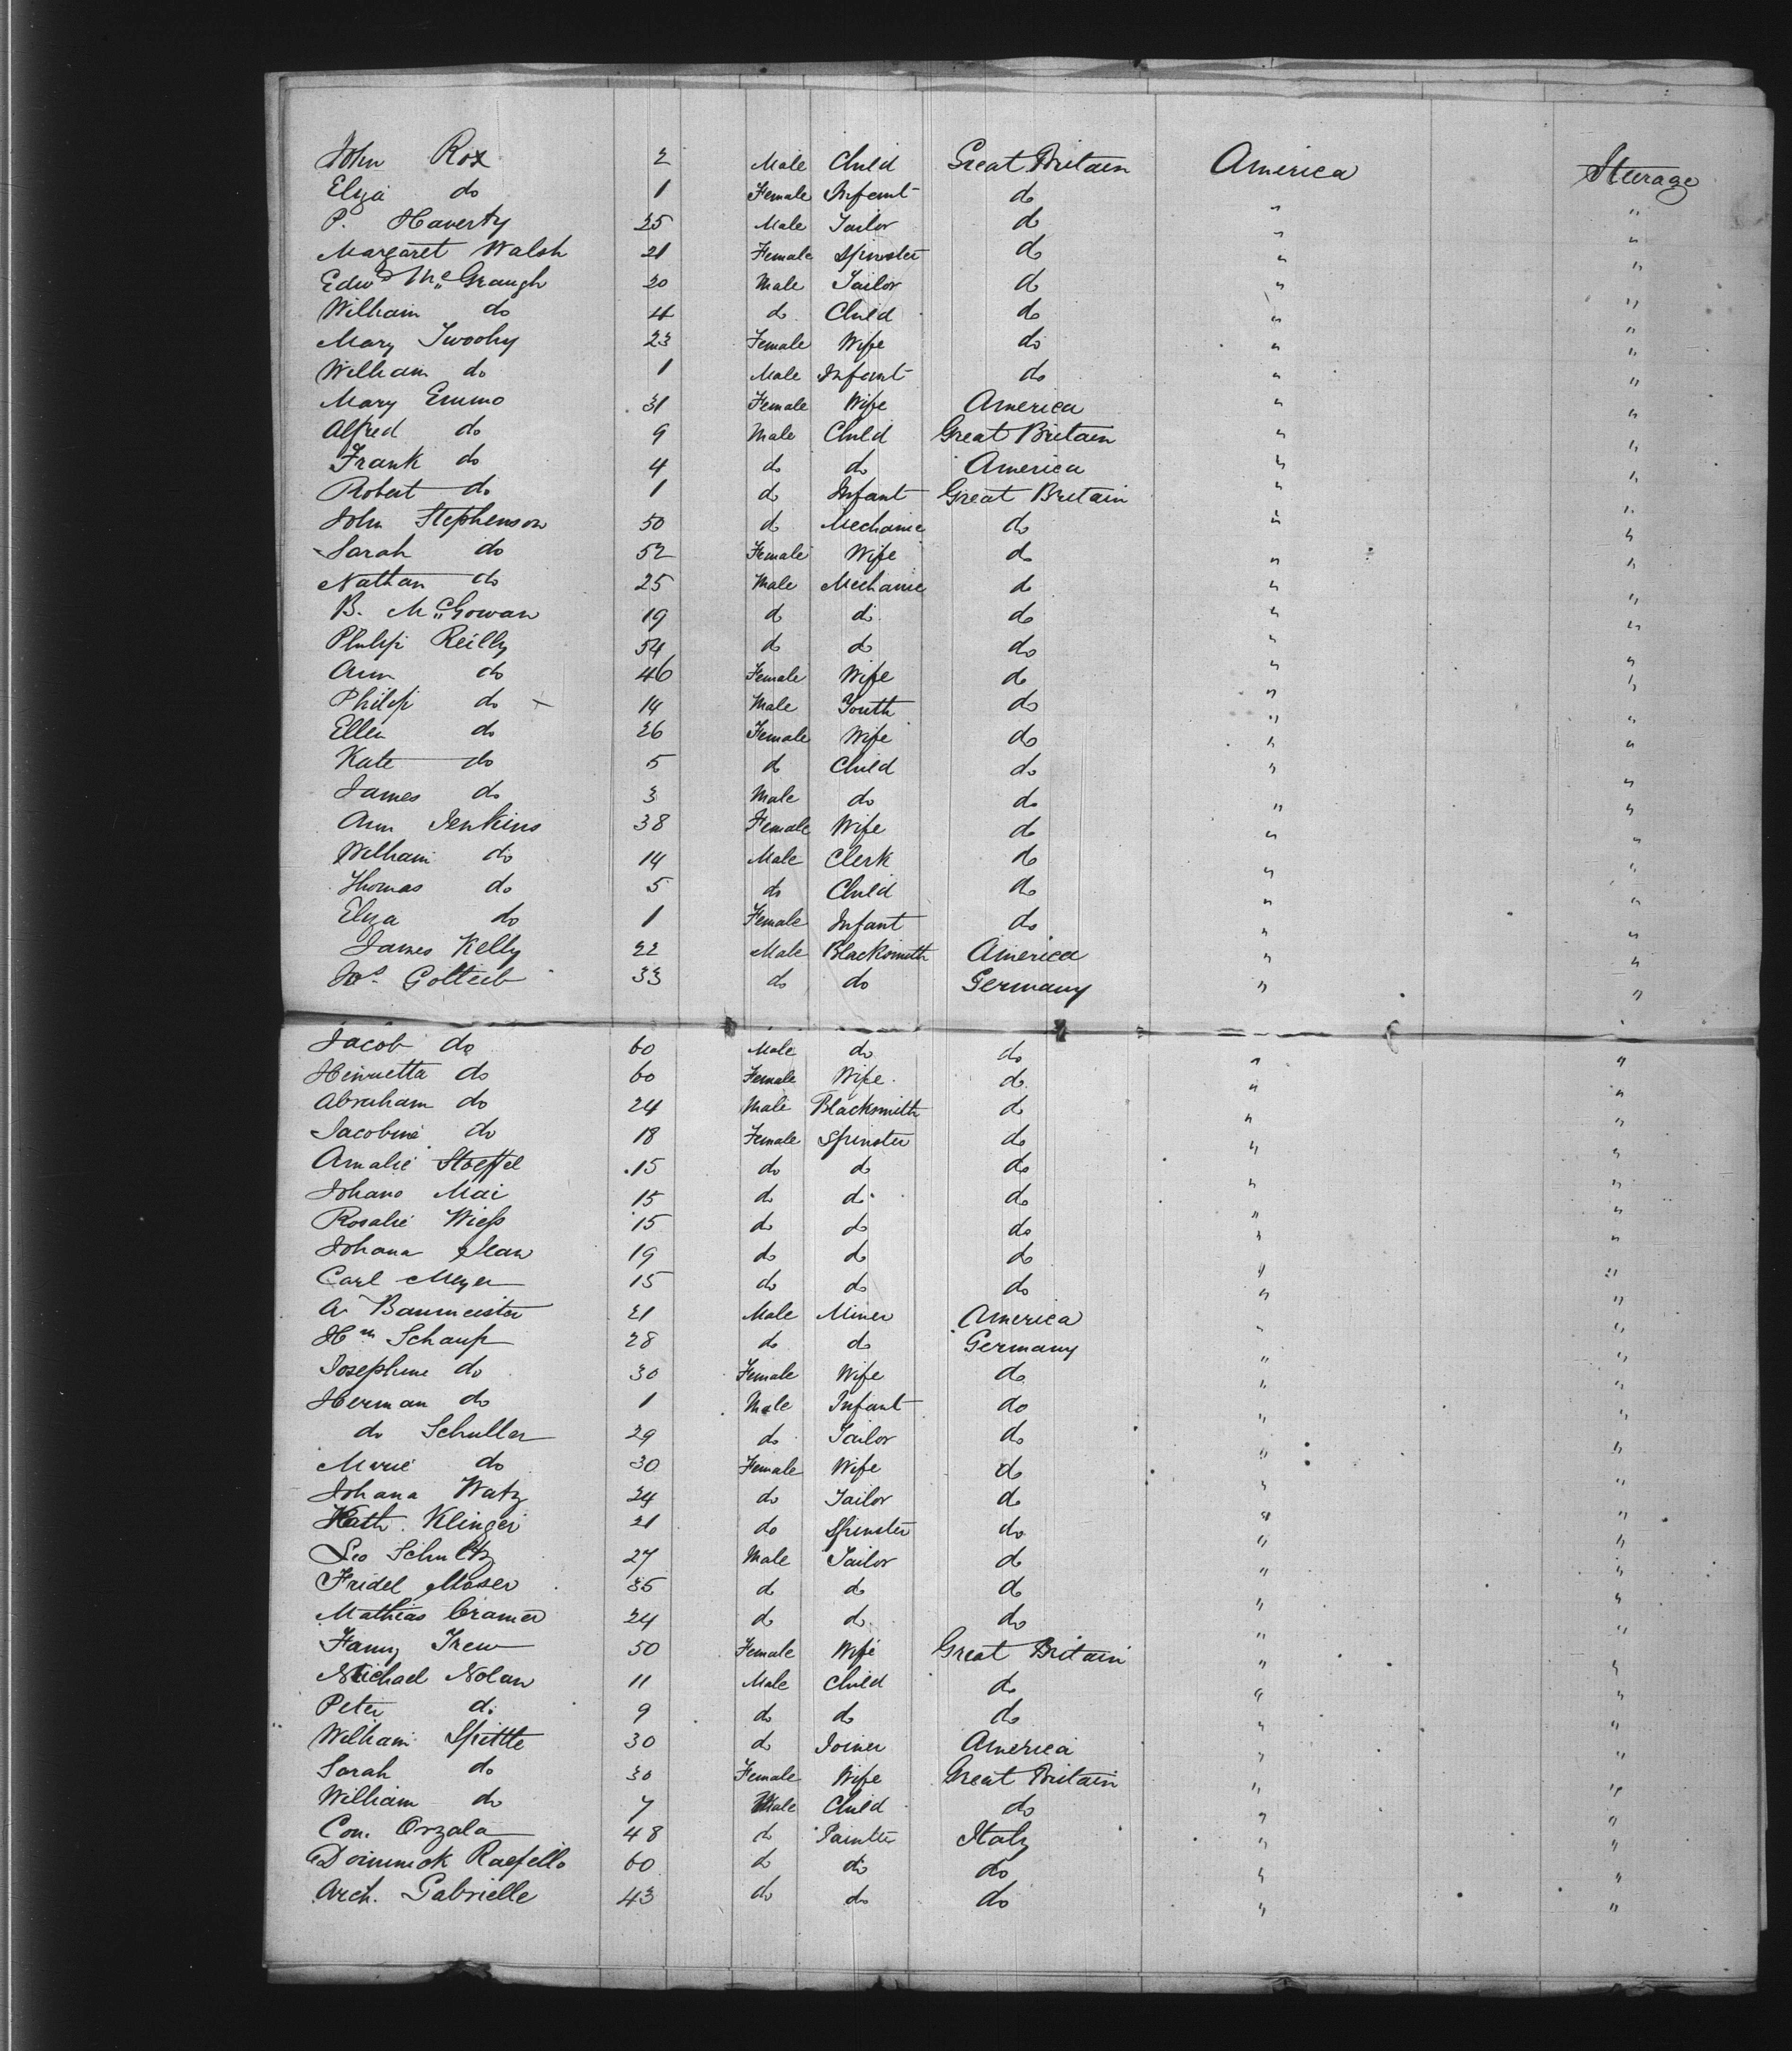 John Rox 2 Male Child Great Britain America Steerage
Eliza do 1 Female Infant do " "
P. Haverty 25 Male Tailor do " "
Margaret Walsh 21 Female Spinster do " "
Edwd McGraugh 20 Male Tailor do " "
William do 4 do Child do " "
Mary Twoohy 23 Female Wife do " "
William do 1 Male Infant do " "
Mary Emmo 31 Female Wife America " "
Alfred do 9 Male Child Great Britain " "
Frank do 4 do do America " "
Robert do 1 do Infant Great Britain " "
John Stephenson 50 do Mechanic do " "
Sarah do 52 Female Wife do " "
Nathan do 25 Male Mechanic do " "
B. McGowan 19 do do do " "
Philip Reilly 54 do do do " "
Ann do 46 Female Wife do " "
Philip do 14 Male Youth do " "
Ellen do 26 Female Wife do " "
Kate do 5 do Child do " "
James do 3 Male do do " "
Ann Jenkins 38 Female Wife do " "
William do 14 Male Clerk do " "
Thomas do 5 do Child do " "
Eliza do 1 Female Infant do " "
James Kelly 22 Male Blacksmith America " "
Jos. Gotteib 33 do do Germany " "
Jacob do 60 Male do do " "
Henrietta do 60 Female Wife do " "
Abraham do 24 Male Blacksmith do " "
Jacobine do 18 Female Spinster do " "
Amalie Stoeffel 15 do do do " "
Johano Mai 15 do do do " "
Rosalie Wiess 15 do do do " "
Johana 19 do do do " "
Carl Meyer 15 do do do " "
A. Baumeister 21 Male Miner America " "
Hm Schaup 28 do do Germany " "
Josephine do 30 Female Wife do " "
Herman do 1 Male Infant do " "
do Schuller 29 do Tailor do " "
Marie do 30 Female Wife do " "
Johana Watz 24 do Tailor do " "
Kath. Klinger 21 do Spinster do " "
Leo Schultz 27 Male Tailor do " "
Fridel Moser 35 do do do " "
Mathias Cramer 24 do do do " "
Fanny Trew 50 Female Wife Great Britain " "
Michael Nolan 11 Male Child do " "
Peter do 9 do do do " "
William Spittle 30 do Joiner America " "
Sarah do 30 Female Wife Great Britain " "
William do 7 Male Child do " "
Con. Orzala 48 do Painter Italy " "
Dominick Raefello 60 do do do " "
Arch. Gabrielle 43 do do do " "